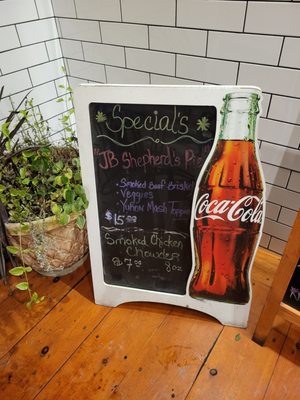 Special's
"JB Shepherd's Pie
• Smoked Beef Brisket
• Veggies
• Yukon Mash Topper
$15.00
Smoked Chicken
Chowder
$7.00 8oz
Coca-Cola